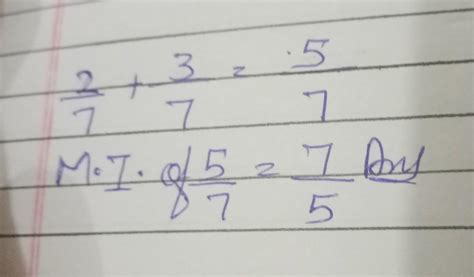 2/7 + 3/7 = 5/7
M.I. of 5/7 = 7/5 Ans